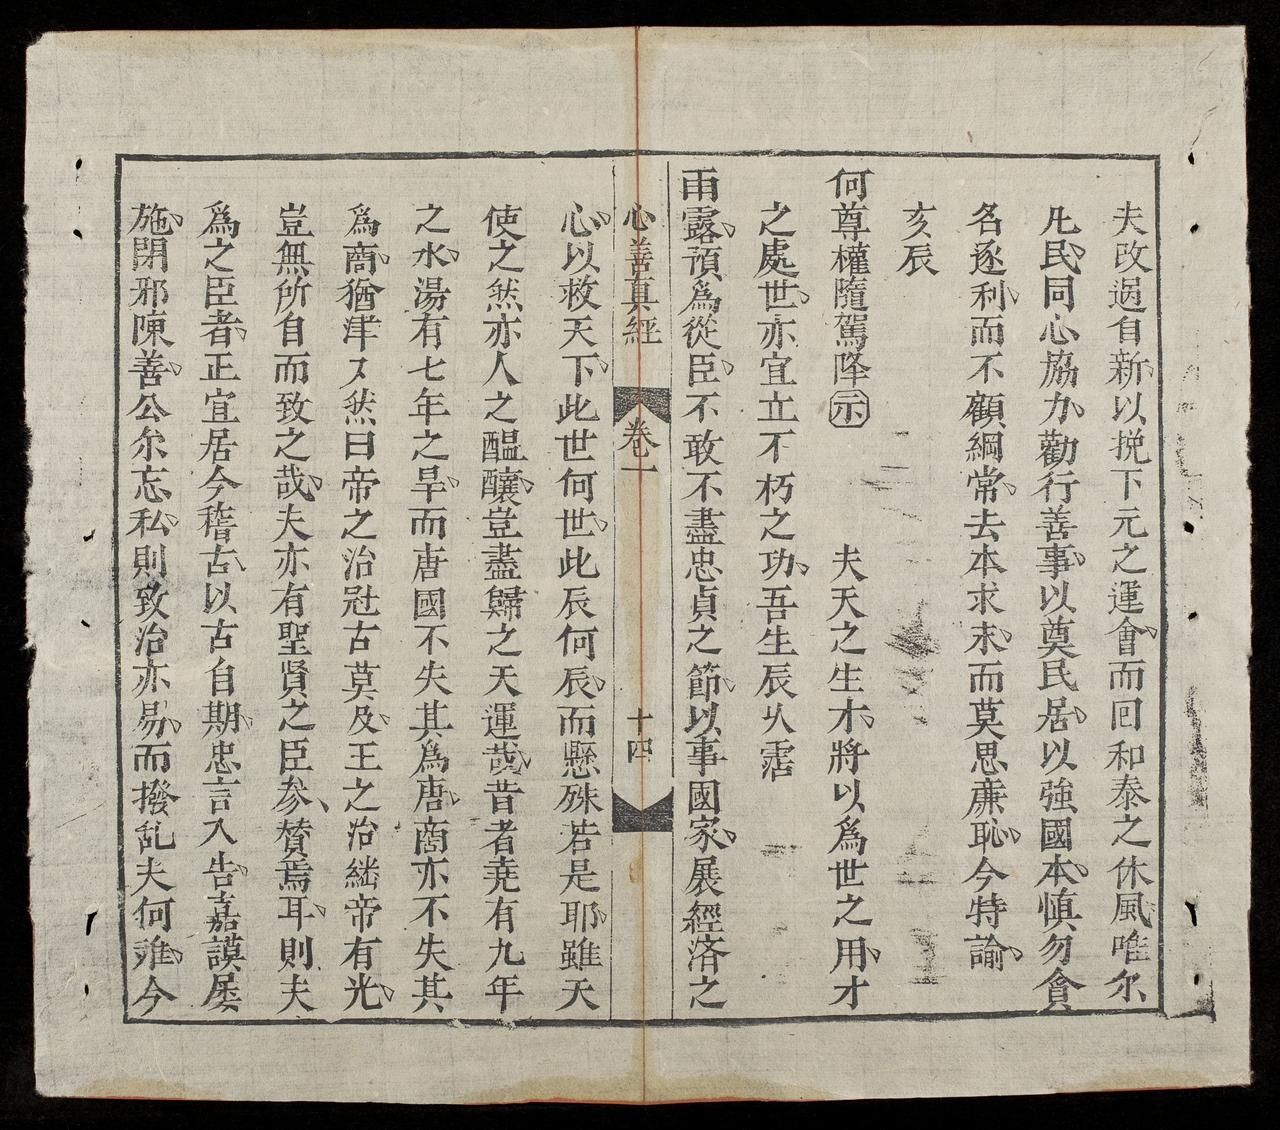 夫改過自新以挽下元之運會而囘和泰之休風唯尔
凡民同心協力勸行善事以奠民居以強國本慎勿貪
名逐利而不顧綱常去本求末而莫思廉恥今特諭
亥辰
何尊權隨駕降示　夫天之生才將以爲世之用才
之處世亦宜立不朽之功吾生辰乆霑
雨露預爲從臣不敢不盡忠貞之節以事國家展經済之
心善真經　卷一　十四
心以救天下此世何世此辰何辰而懸殊若是耶雖天
使之然亦人之醞釀豈盡歸之天運哉昔者堯有九年
之水湯有七年之旱而唐國不失其爲唐商亦不失其
爲商猶津又然曰帝之治冠古莫及王之治継帝有光
豈無所自而致之哉夫亦有聖賢之臣参賛焉耳則夫
爲之臣者正宜居今稽古以古自期忠言入告嘉謨屡
施閉邪陳善公尔忘私則致治亦易而撥乱夫何難今